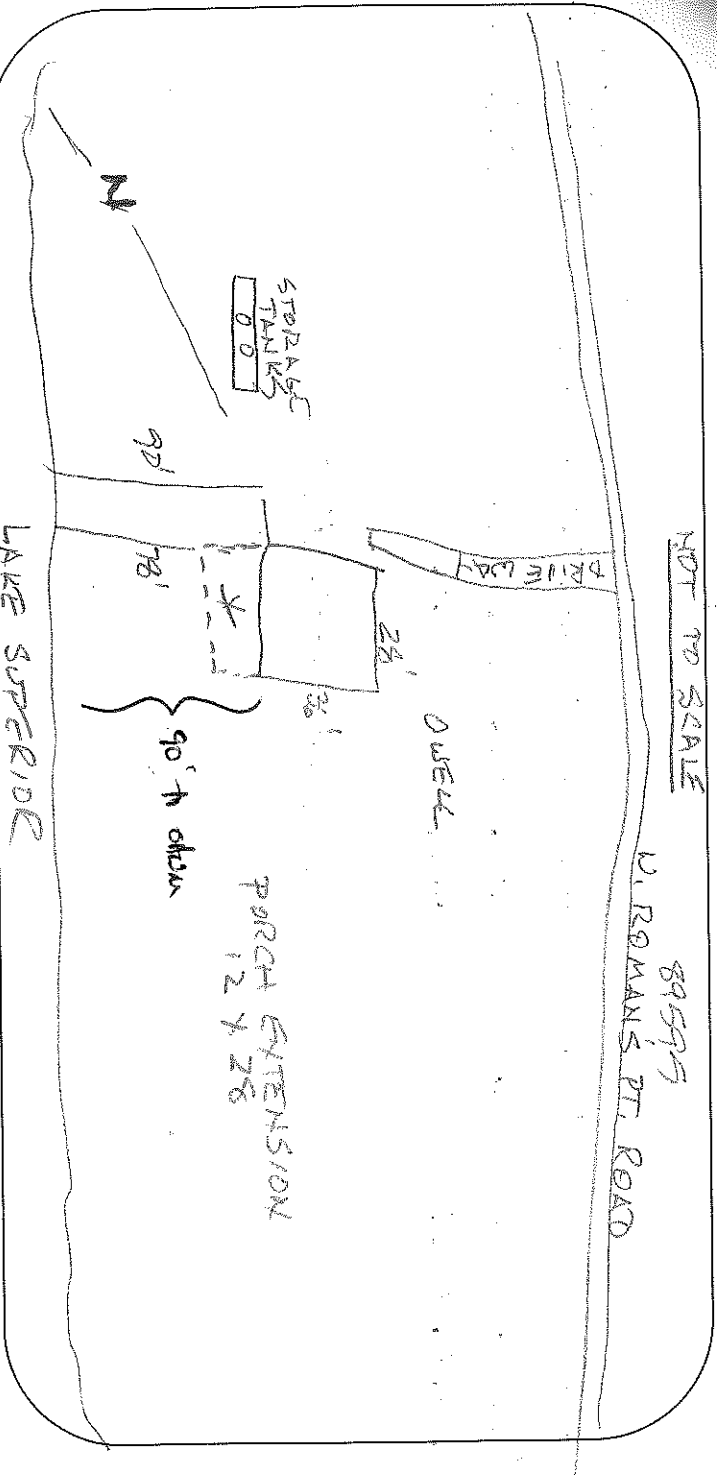 NOT TO SCALE
89595
N. ROMANS PT. ROAD
DRIVE WA
STORAGE
TANKS
O O
N
28'
36'
O WELL
90'
78'
*
90' to ohwm
PORCH EXTENSION
12 X 28
LAKE SUPERIOR